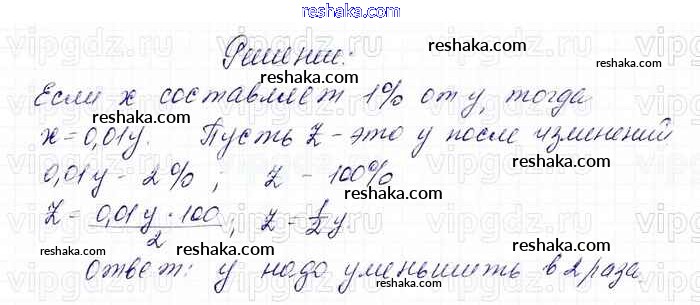 Решение:
Если x составляет 1% от y, тогда
x = 0,01y. Пусть z - это y после изменений
0,01y - 2% ; z - 100%
z = 0,01y · 100 / 2 ; z = 1/2 y
Ответ: y надо уменьшить в 2 раза.
reshaka.com
reshaka.com
reshaka.com
reshaka.com
reshaka.com
reshaka.com
reshaka.com
reshaka.com
reshaka.com
reshaka.com
vipgdz.ru
vipgdz.ru
vipgdz.ru
vipgdz.ru